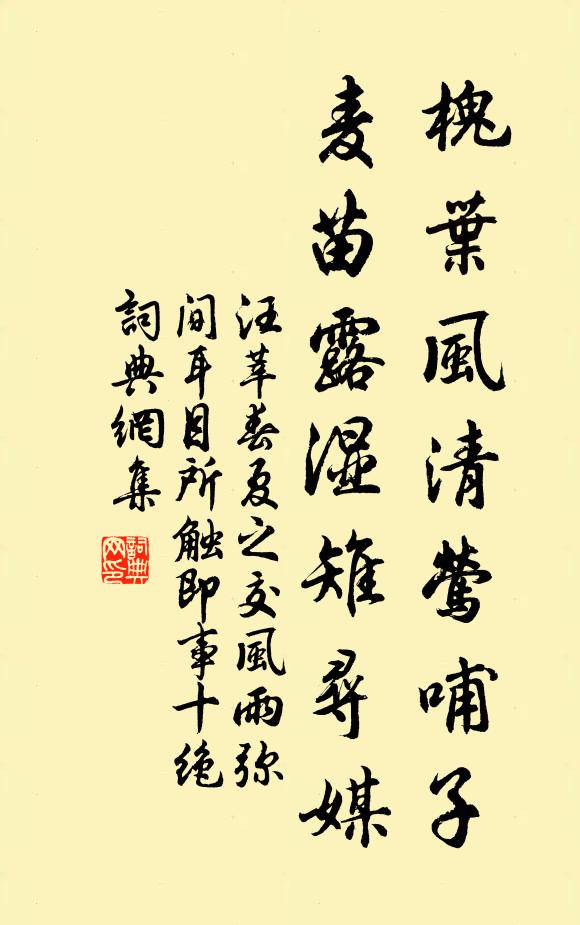 槐葉風清鶯哺子
麦苗露湿雉尋媒
汪莘春夏之交風雨弥
间耳目所触即事十绝
詞典網集
詞典
网印